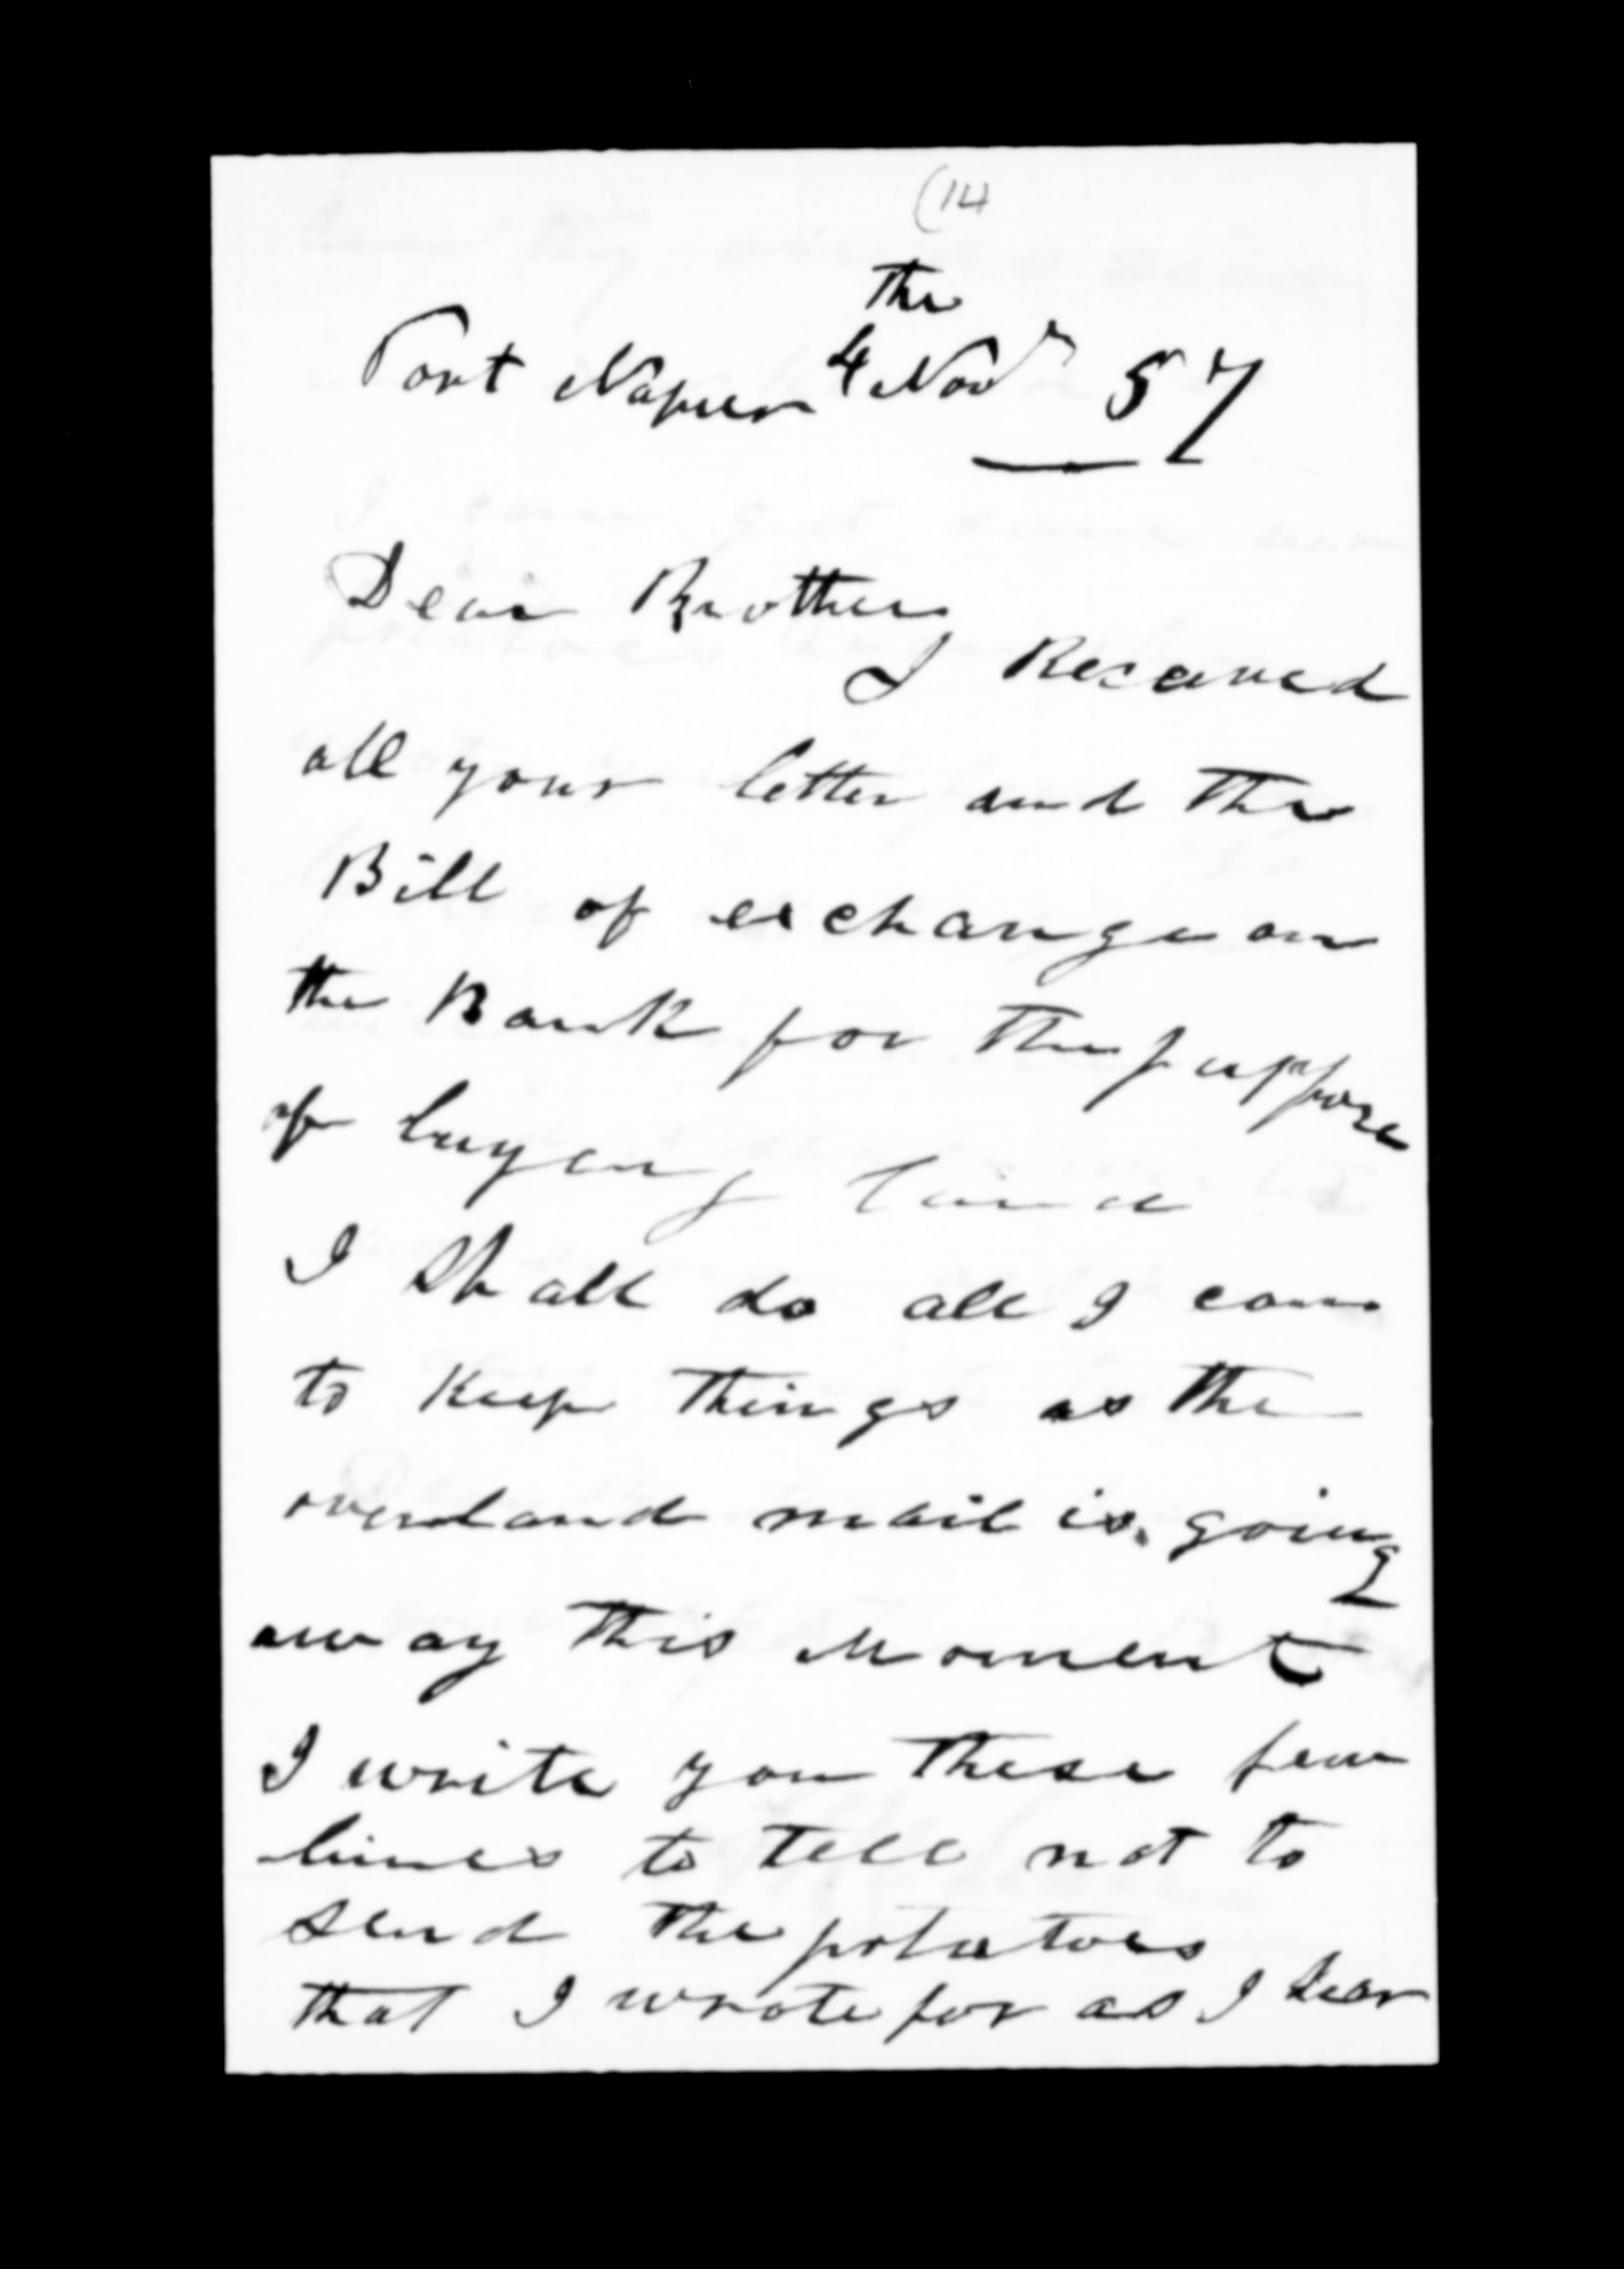 (14
the
Port Napier 4 Novr 57
Dear Brother
I Recaved
all your letter and the
Bill of exchange on
the Bank for the puppose
of buyeng land
I Shall do all I can
to Keep things as the
overland mail is going
away this Moment
I write you these few
lines to tell not to
send the potatoes
that I wrote for as I hear